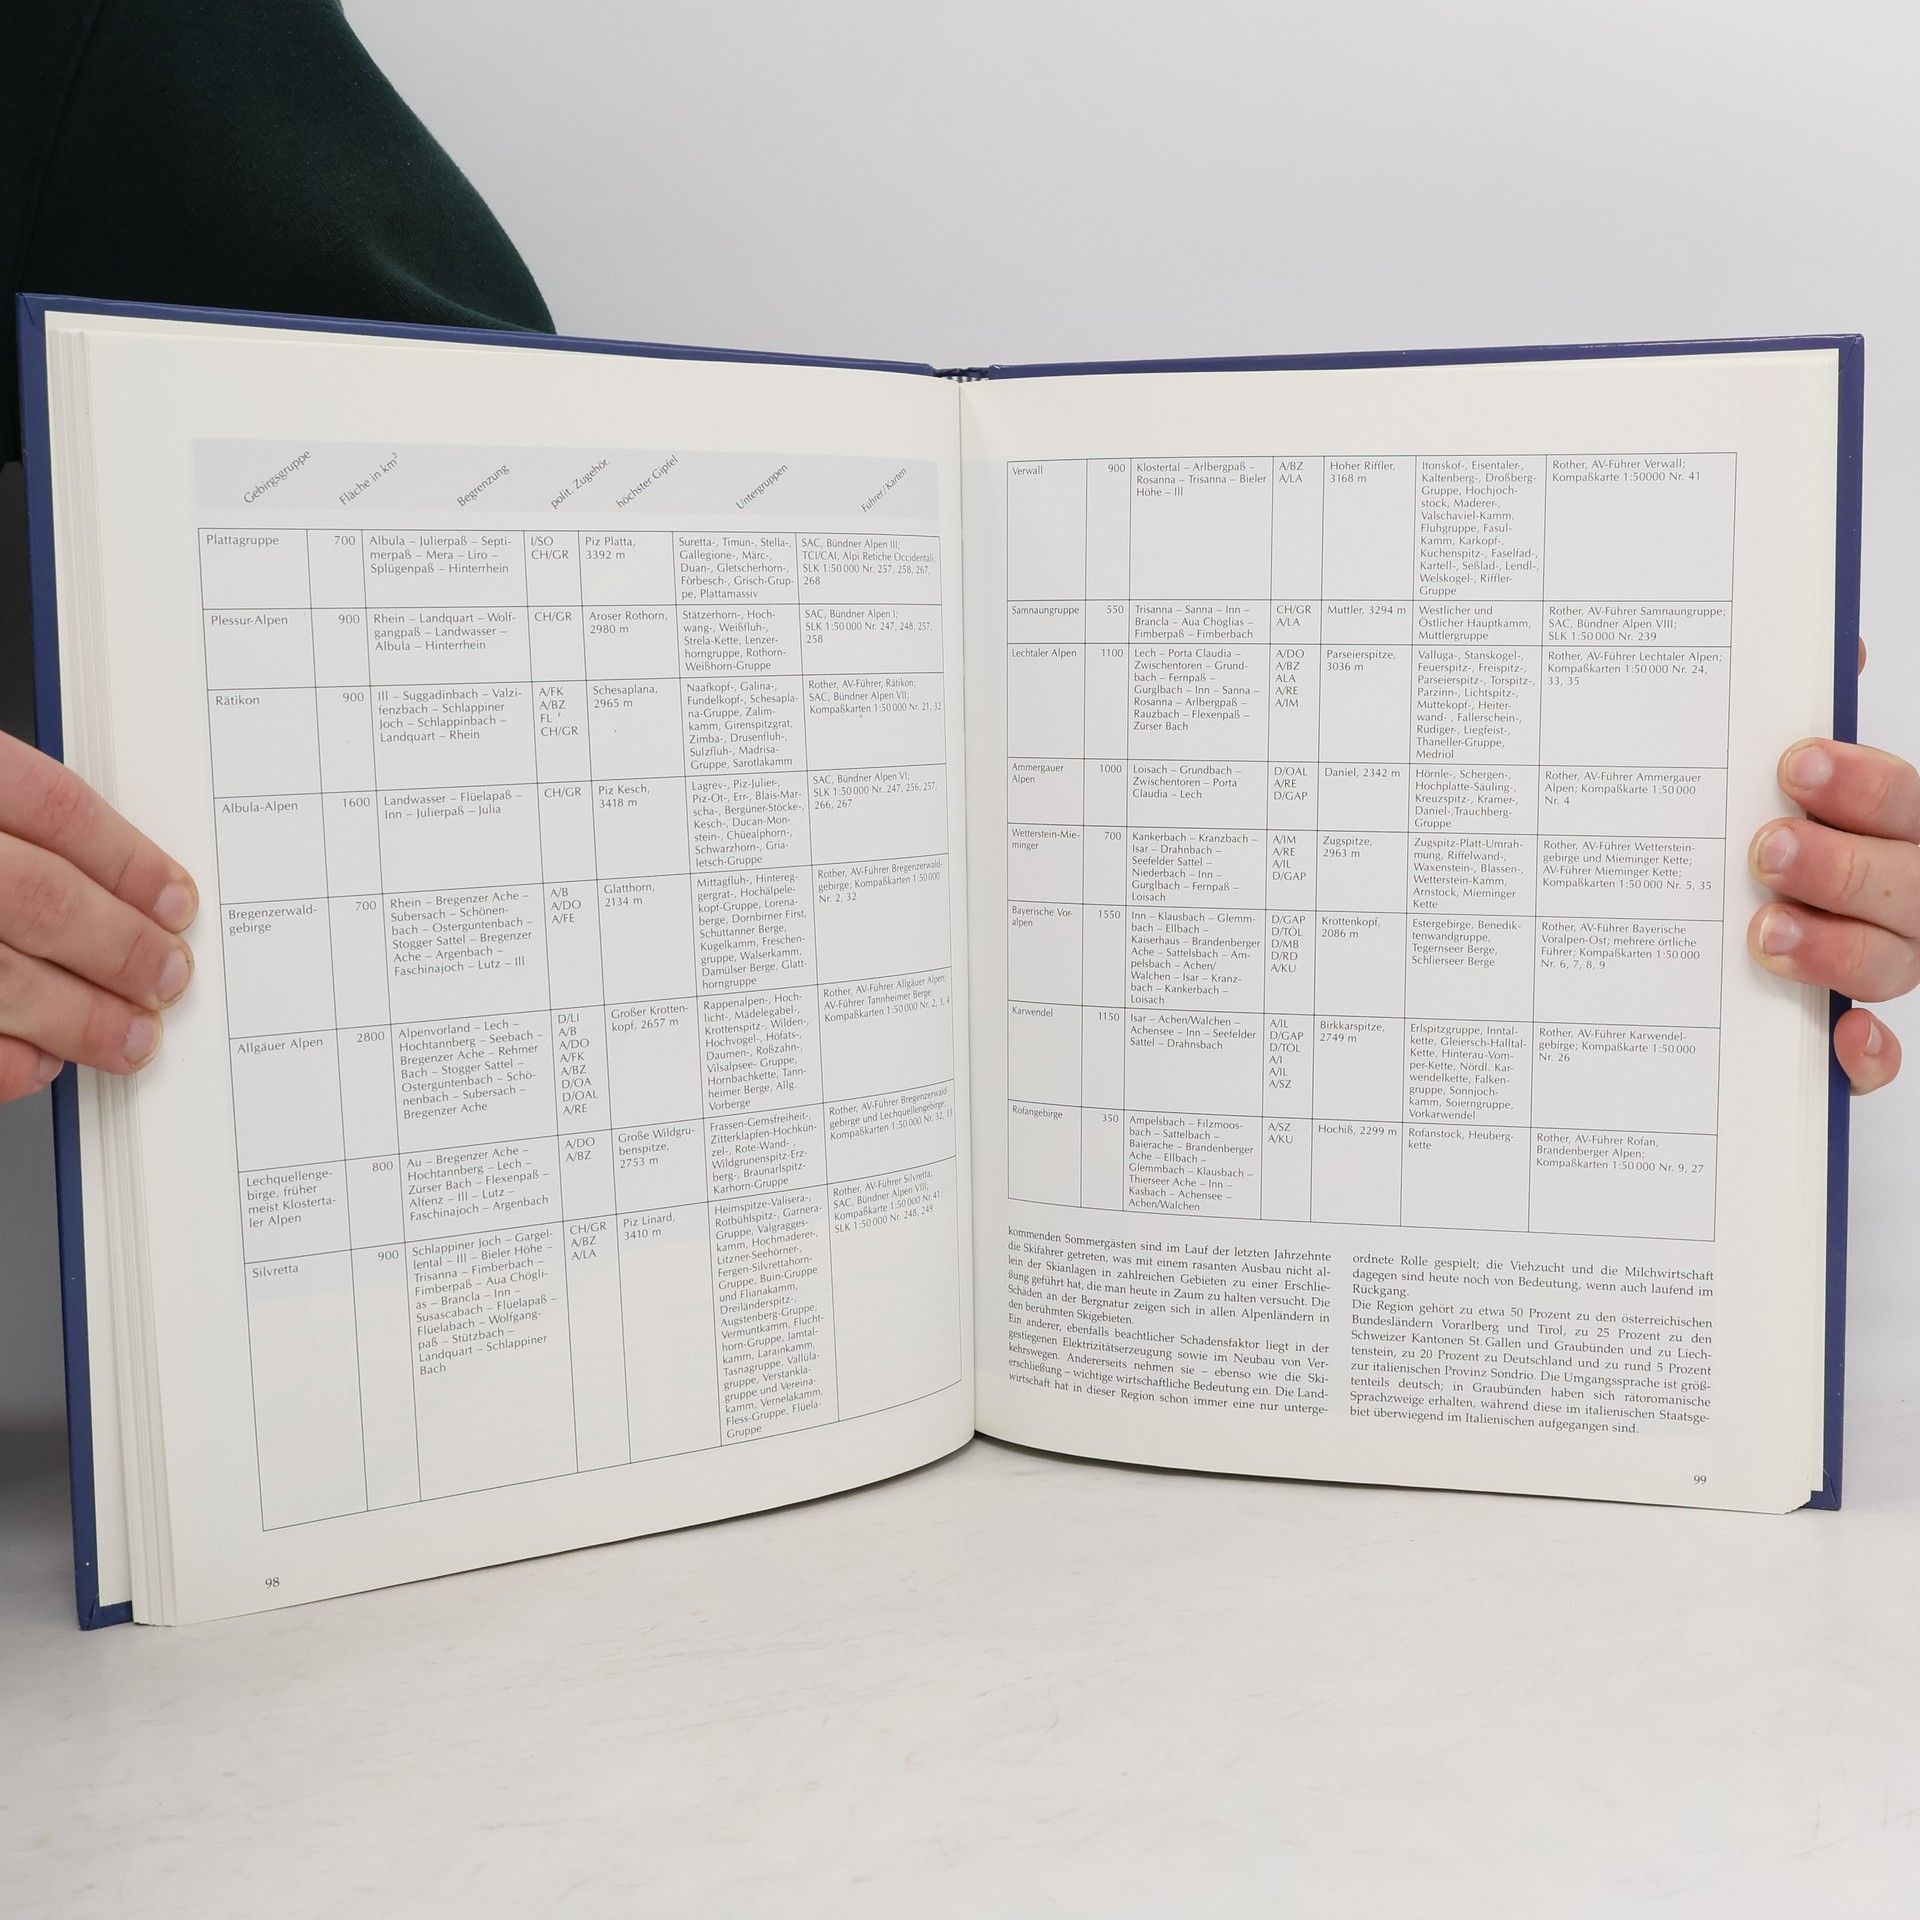 Gebirgsgruppe
Fläche in km²
Begrenzung
polit. Zugehör.
höchster Gipfel
Untergruppen
Führer/Karten
Plattagruppe
700
Albula – Julierpaß – Septi-
merpaß – Mera – Liro –
Splügenpaß – Hinterrhein
I/SO
CH/GR
Piz Platta,
3392 m
Suretta-, Timun-, Stella-,
Gallegione-, Märc-,
Duan-, Gletscherhorn-,
Fòrbesch-, Grisch-Grup-
pe, Plattamassiv
SAC, Bündner Alpen III;
TCI/CAI, Alpi Retiche Occidentali;
SLK 1:50 000 Nr. 257, 258, 267,
268
Plessur-Alpen
900
Rhein – Landquart – Wolf-
gangpaß – Landwasser –
Albula – Hinterrhein
CH/GR
Aroser Rothorn,
2980 m
Stätzerhorn-, Hoch-
wang-, Weißfluh-,
Strela-Kette, Lenzer-
horngruppe, Rothorn-
Weißhorn-Gruppe
SAC, Bündner Alpen I;
SLK 1:50 000 Nr. 247, 248, 257,
258
Rätikon
900
Ill – Suggadinbach – Valzi-
fenzbach – Schlappiner
Joch – Schlappinbach –
Landquart – Rhein
A/FK
A/BZ
FL
CH/GR
Schesaplana,
2965 m
Naafkopf-, Galina-,
Fundelkopf-, Schesapla-
na-Gruppe, Zalim-
kamm, Girenspitzgrat,
Zimba-, Drusenfluh-,
Sulzfluh-, Madrisa-
Gruppe, Sarotlakamm
Rother, AV-Führer, Rätikon;
SAC, Bündner Alpen VII;
Kompaßkarten 1:50 000 Nr. 21, 32
Albula-Alpen
1600
Landwasser – Flüelapaß –
Inn – Julierpaß – Julia
CH/GR
Piz Kesch,
3418 m
Lagrev-, Piz-Julier-,
Piz-Ot-, Err-, Blais-Mar-
scha-, Bergüner-Stöcke-,
Kesch-, Ducan-Mon-
stein-, Chüealphorn-,
Schwarzhorn-, Gria-
letsch-Gruppe
SAC, Bündner Alpen VI;
SLK 1:50 000 Nr. 247, 256, 257,
266, 267
Bregenzerwald-
gebirge
700
Rhein – Bregenzer Ache –
Subersach – Schönen-
bach – Osterguntenbach –
Stogger Sattel – Bregenzer
Ache – Argenbach –
Faschinajoch – Lutz – Ill
A/B
A/DO
A/FE
Glatthorn,
2134 m
Mittagfluh-, Hintereg-
gergrat-, Hochälpele-
kopf-Gruppe, Lorena-
berge, Dornbirner First,
Schuttanner Berge,
Kugelkamm, Freschen-
gruppe, Walserkamm,
Damülser Berge, Glatt-
horngruppe
Rother, AV-Führer Bregenzerwald-
gebirge; Kompaßkarten 1:50 000
Nr. 2, 32
Allgäuer Alpen
2800
Alpenvorland – Lech –
Hochtannberg – Seebach –
Bregenzer Ache – Rehmer
Bach – Stogger Sattel –
Osterguntenbach – Schö-
nenbach – Subersach –
Bregenzer Ache
D/LI
A/B
A/DO
A/FK
A/BZ
D/OA
D/OAL
A/RE
Großer Krotten-
kopf, 2657 m
Rappenalpen-, Hoch-
licht-, Mädelegabel-,
Krottenspitz-, Wilden-,
Hochvogel-, Höfats-,
Daumen-, Roßzahn-,
Vilsalpsee- Gruppe,
Hornbachkette, Tann-
heimer Berge, Allg.
Vorberge
Rother, AV-Führer Allgäuer Alpen;
AV-Führer Tannheimer Berge;
Kompaßkarten 1:50 000 Nr. 2, 3, 4
Lechquellenge-
birge, früher
meist Klosterta-
ler Alpen
800
Au – Bregenzer Ache –
Hochtannberg – Lech –
Zürser Bach – Flexenpaß –
Alfenz – Ill – Lutz –
Faschinajoch – Argenbach
A/DO
A/BZ
Große Wildgru-
benspitze,
2753 m
Frassen-Gemsfreiheit-,
Zitterklapfen-Hochkün-
zel-, Rote-Wand- ,
Wildgrunenspitz-Erz-
berg-, Braunarlspitz-
Karhorn-Gruppe
Rother, AV-Führer Bregenzerwald-
gebirge und Lechquellengebirge;
Kompaßkarten 1:50 000 Nr. 32, 33
Silvretta
900
Schlappiner Joch – Gargel-
lental – Ill – Bieler Höhe –
Trisanna – Fimberbach –
Fimberpaß – Aua Chögli-
as – Brancla – Inn –
Susascabach – Flüelapaß –
Flüelabach – Wolfgang-
paß – Stützbach –
Landquart – Schlappiner
Bach
CH/GR
A/BZ
A/LA
Piz Linard,
3410 m
Heimspitze-Valisera-,
Rotbühlspitz-, Garnera-
Gruppe, Valgragges-
kamm, Hochmaderer-,
Litzner-Seehörner-,
Fergen-Silvrettahorn-
Gruppe, Buin-Gruppe
und Flianakamm,
Dreiländerspitz-,
Augstenberg-Gruppe,
Vermuntkamm, Flucht-
horn-Gruppe, Jamtal-
kamm, Larainkamm,
Tasnagruppe, Vallüla-
gruppe, Verstankla-
gruppe und Vereina-
kamm, Vernelakamm,
Fless-Gruppe, Flüela-
Gruppe
Rother, AV-Führer Silvretta;
SAC, Bündner Alpen VIII;
Kompaßkarte 1:50 000 Nr. 41;
SLK 1:50 000 Nr. 248, 249
98
Verwall
900
Klostertal – Arlbergpaß –
Rosanna – Trisanna – Bieler
Höhe – Ill
A/BZ
A/LA
Hoher Riffler,
3168 m
Itonskof-, Eisentaler-,
Kaltenberg-, Droßberg-
Gruppe, Hochjoch-
stock, Maderer-,
Valschaviel-Kamm,
Fluhgruppe, Fasul-
Kamm, Karkopf-,
Kuchenspitz-, Faselfad-,
Kartell-, Seßlad-, Lendl-,
Welskogel-, Riffler-
Gruppe
Rother, AV-Führer Verwall;
Kompaßkarte 1:50000 Nr. 41
Samnaungruppe
550
Trisanna – Sanna – Inn –
Brancla – Aua Chöglias –
Fimberpaß – Fimberbach
CH/GR
A/LA
Muttler, 3294 m
Westlicher und
Östlicher Hauptkamm,
Muttlergruppe
Rother, AV-Führer Samnaungruppe;
SAC, Bündner Alpen VIII;
SLK 1:50 000 Nr. 239
Lechtaler Alpen
1100
Lech – Porta Claudia –
Zwischentoren – Grund-
bach – Fernpaß –
Gurglbach – Inn – Sanna –
Rosanna – Arlbergpaß –
Rauzbach – Flexenpaß –
Zürser Bach
A/DO
A/BZ
ALA
A/RE
A/IM
Parseierspitze,
3036 m
Valluga-, Stanskogel-,
Feuerspitz-, Freispitz-,
Parseierspitz-, Torspitz-,
Parzinn-, Lichtspitz-,
Muttekopf-, Heiter-
wand- , Fallerschein-,
Rudiger-, Liegfeist-,
Thaneller-Gruppe,
Medriol
Rother, AV-Führer Lechtaler Alpen;
Kompaßkarten 1:50 000 Nr. 24,
33, 35
Ammergauer
Alpen
1000
Loisach – Grundbach –
Zwischentoren – Porta
Claudia – Lech
D/OAL
A/RE
D/GAP
Daniel, 2342 m
Hörnle-, Schergen-,
Hochplatte-Säuling-,
Kreuzspitz-, Kramer-,
Daniel-,Trauchberg-
Gruppe
Rother, AV-Führer Ammergauer
Alpen; Kompaßkarte 1:50 000
Nr. 4
Wetterstein-Mie-
minger
700
Kankerbach – Kranzbach –
Isar – Drahnbach –
Seefelder Sattel –
Niederbach – Inn –
Gurglbach – Fernpaß –
Loisach
A/IM
A/RE
A/IL
D/GAP
Zugspitze,
2963 m
Zugspitz-Platt-Umrah-
mung, Riffelwand-,
Waxenstein-, Blassen-,
Wetterstein-Kamm,
Arnstock, Mieminger
Kette
Rother, AV-Führer Wetterstein-
gebirge und Mieminger Kette;
AV-Führer Mieminger Kette;
Kompaßkarten 1:50 000 Nr. 5, 35
Bayerische Vor-
alpen
1550
Inn – Klausbach – Glemm-
bach – Ellbach –
Kaiserhaus – Brandenberger
Ache – Sattelsbach – Am-
pelsbach – Achen/
Walchen – Isar – Kranz-
bach – Kankerbach –
Loisach
D/GAP
D/TÖL
D/MB
D/RD
A/KU
Krottenkopf,
2086 m
Estergebirge, Benedik-
tenwandgruppe,
Tegernseer Berge,
Schlierseer Berge
Rother, AV-Führer Bayerische
Voralpen-Ost; mehrere örtliche
Führer; Kompaßkarten 1:50 000
Nr. 6, 7, 8, 9
Karwendel
1150
Isar – Achen/Walchen –
Achensee – Inn – Seefelder
Sattel – Drahnsbach
A/IL
D/GAP
D/TÖL
A/I
A/IL
A/SZ
Birkkarspitze,
2749 m
Erlspitzgruppe, Inntal-
kette, Gleiersch-Halltal-
Kette, Hinterau-Vom-
per-Kette, Nördl. Kar-
wendelkette, Falken-
gruppe, Sonnjoch-
kamm, Soierngruppe,
Vorkarwendel
Rother, AV-Führer Karwendel-
gebirge; Kompaßkarte 1:50 000
Nr. 26
Rofangebirge
350
Ampelsbach – Filzmoos-
bach – Sattelbach –
Baierache – Brandenberger
Ache – Ellbach –
Glemmbach – Klausbach –
Thierseer Ache – Inn –
Kasbach – Achensee –
Achen/Walchen
A/SZ
A/KU
Hochiß, 2299 m
Rofanstock, Heuberg-
kette
Rother, AV-Führer Rofan,
Brandenberger Alpen;
Kompaßkarten 1:50 000 Nr. 9, 27
kommenden Sommergästen sind im Lauf der letzten Jahrzehnte
die Skifahrer getreten, was mit einem rasanten Ausbau nicht al-
lein der Skianlagen in zahlreichen Gebieten zu einer Erschlie-
ßung geführt hat, die man heute in Zaum zu halten versucht. Die
Schäden an der Bergnatur zeigen sich in allen Alpenländern in
den berühmten Skigebieten.
Ein anderer, ebenfalls beachtlicher Schadensfaktor liegt in der
gestiegenen Elektrizitätserzeugung sowie im Neubau von Ver-
kehrswegen. Andererseits nehmen sie – ebenso wie die Ski-
erschließung – wichtige wirtschaftliche Bedeutung ein. Die Land-
wirtschaft hat in dieser Region schon immer eine nur unterge-
ordnete Rolle gespielt; die Viehzucht und die Milchwirtschaft
dagegen sind heute noch von Bedeutung, wenn auch laufend im
Rückgang.
Die Region gehört zu etwa 50 Prozent zu den österreichischen
Bundesländern Vorarlberg und Tirol, zu 25 Prozent zu den
Schweizer Kantonen St. Gallen und Graubünden und zu Liech-
tenstein, zu 20 Prozent zu Deutschland und zu rund 5 Prozent
zur italienischen Provinz Sondrio. Die Umgangssprache ist größ-
tenteils deutsch; in Graubünden haben sich rätoromanische
Sprachzweige erhalten, während diese im italienischen Staatsge-
biet überwiegend im Italienischen aufgegangen sind.
99